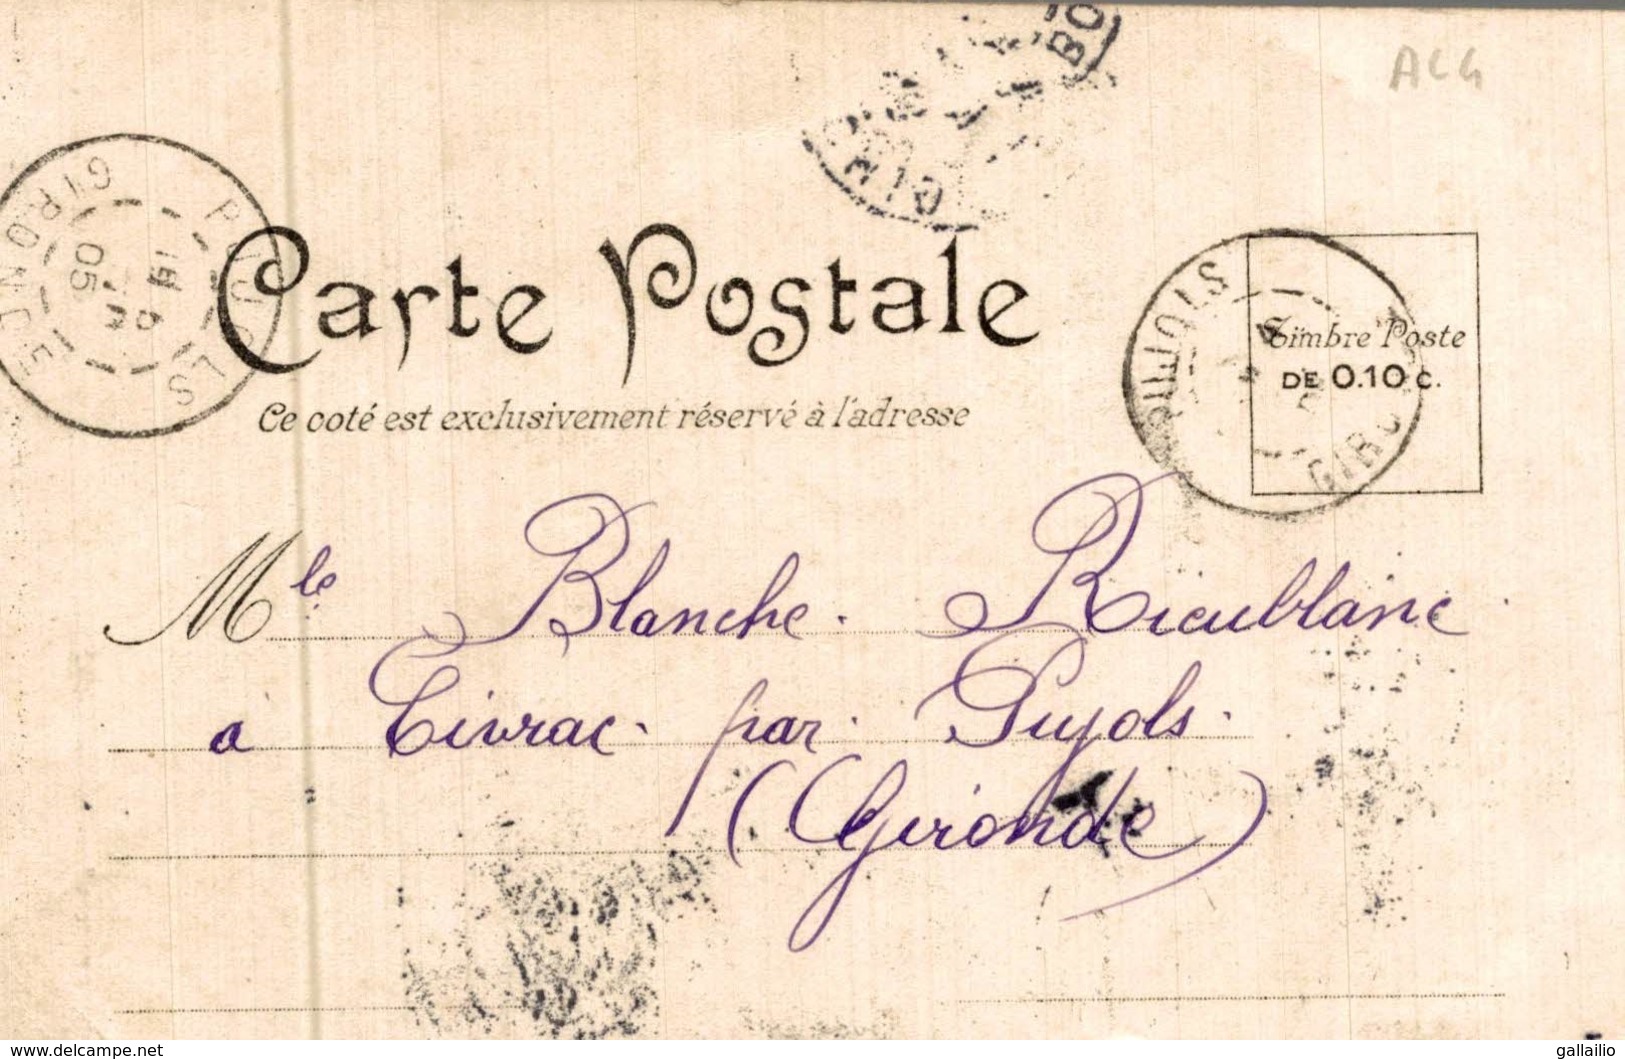 ALG
GIRONDE
PUJOLS
19
05
GIR
BO
Carte Postale
Timbre Poste
DE 0.10 c.
Ce coté est exclusivement réservé à l'adresse
Mle Blanche. Rieublanc
a Civrac. par. Pujols.
(Gironde)
www.delcampe.net
gallailio